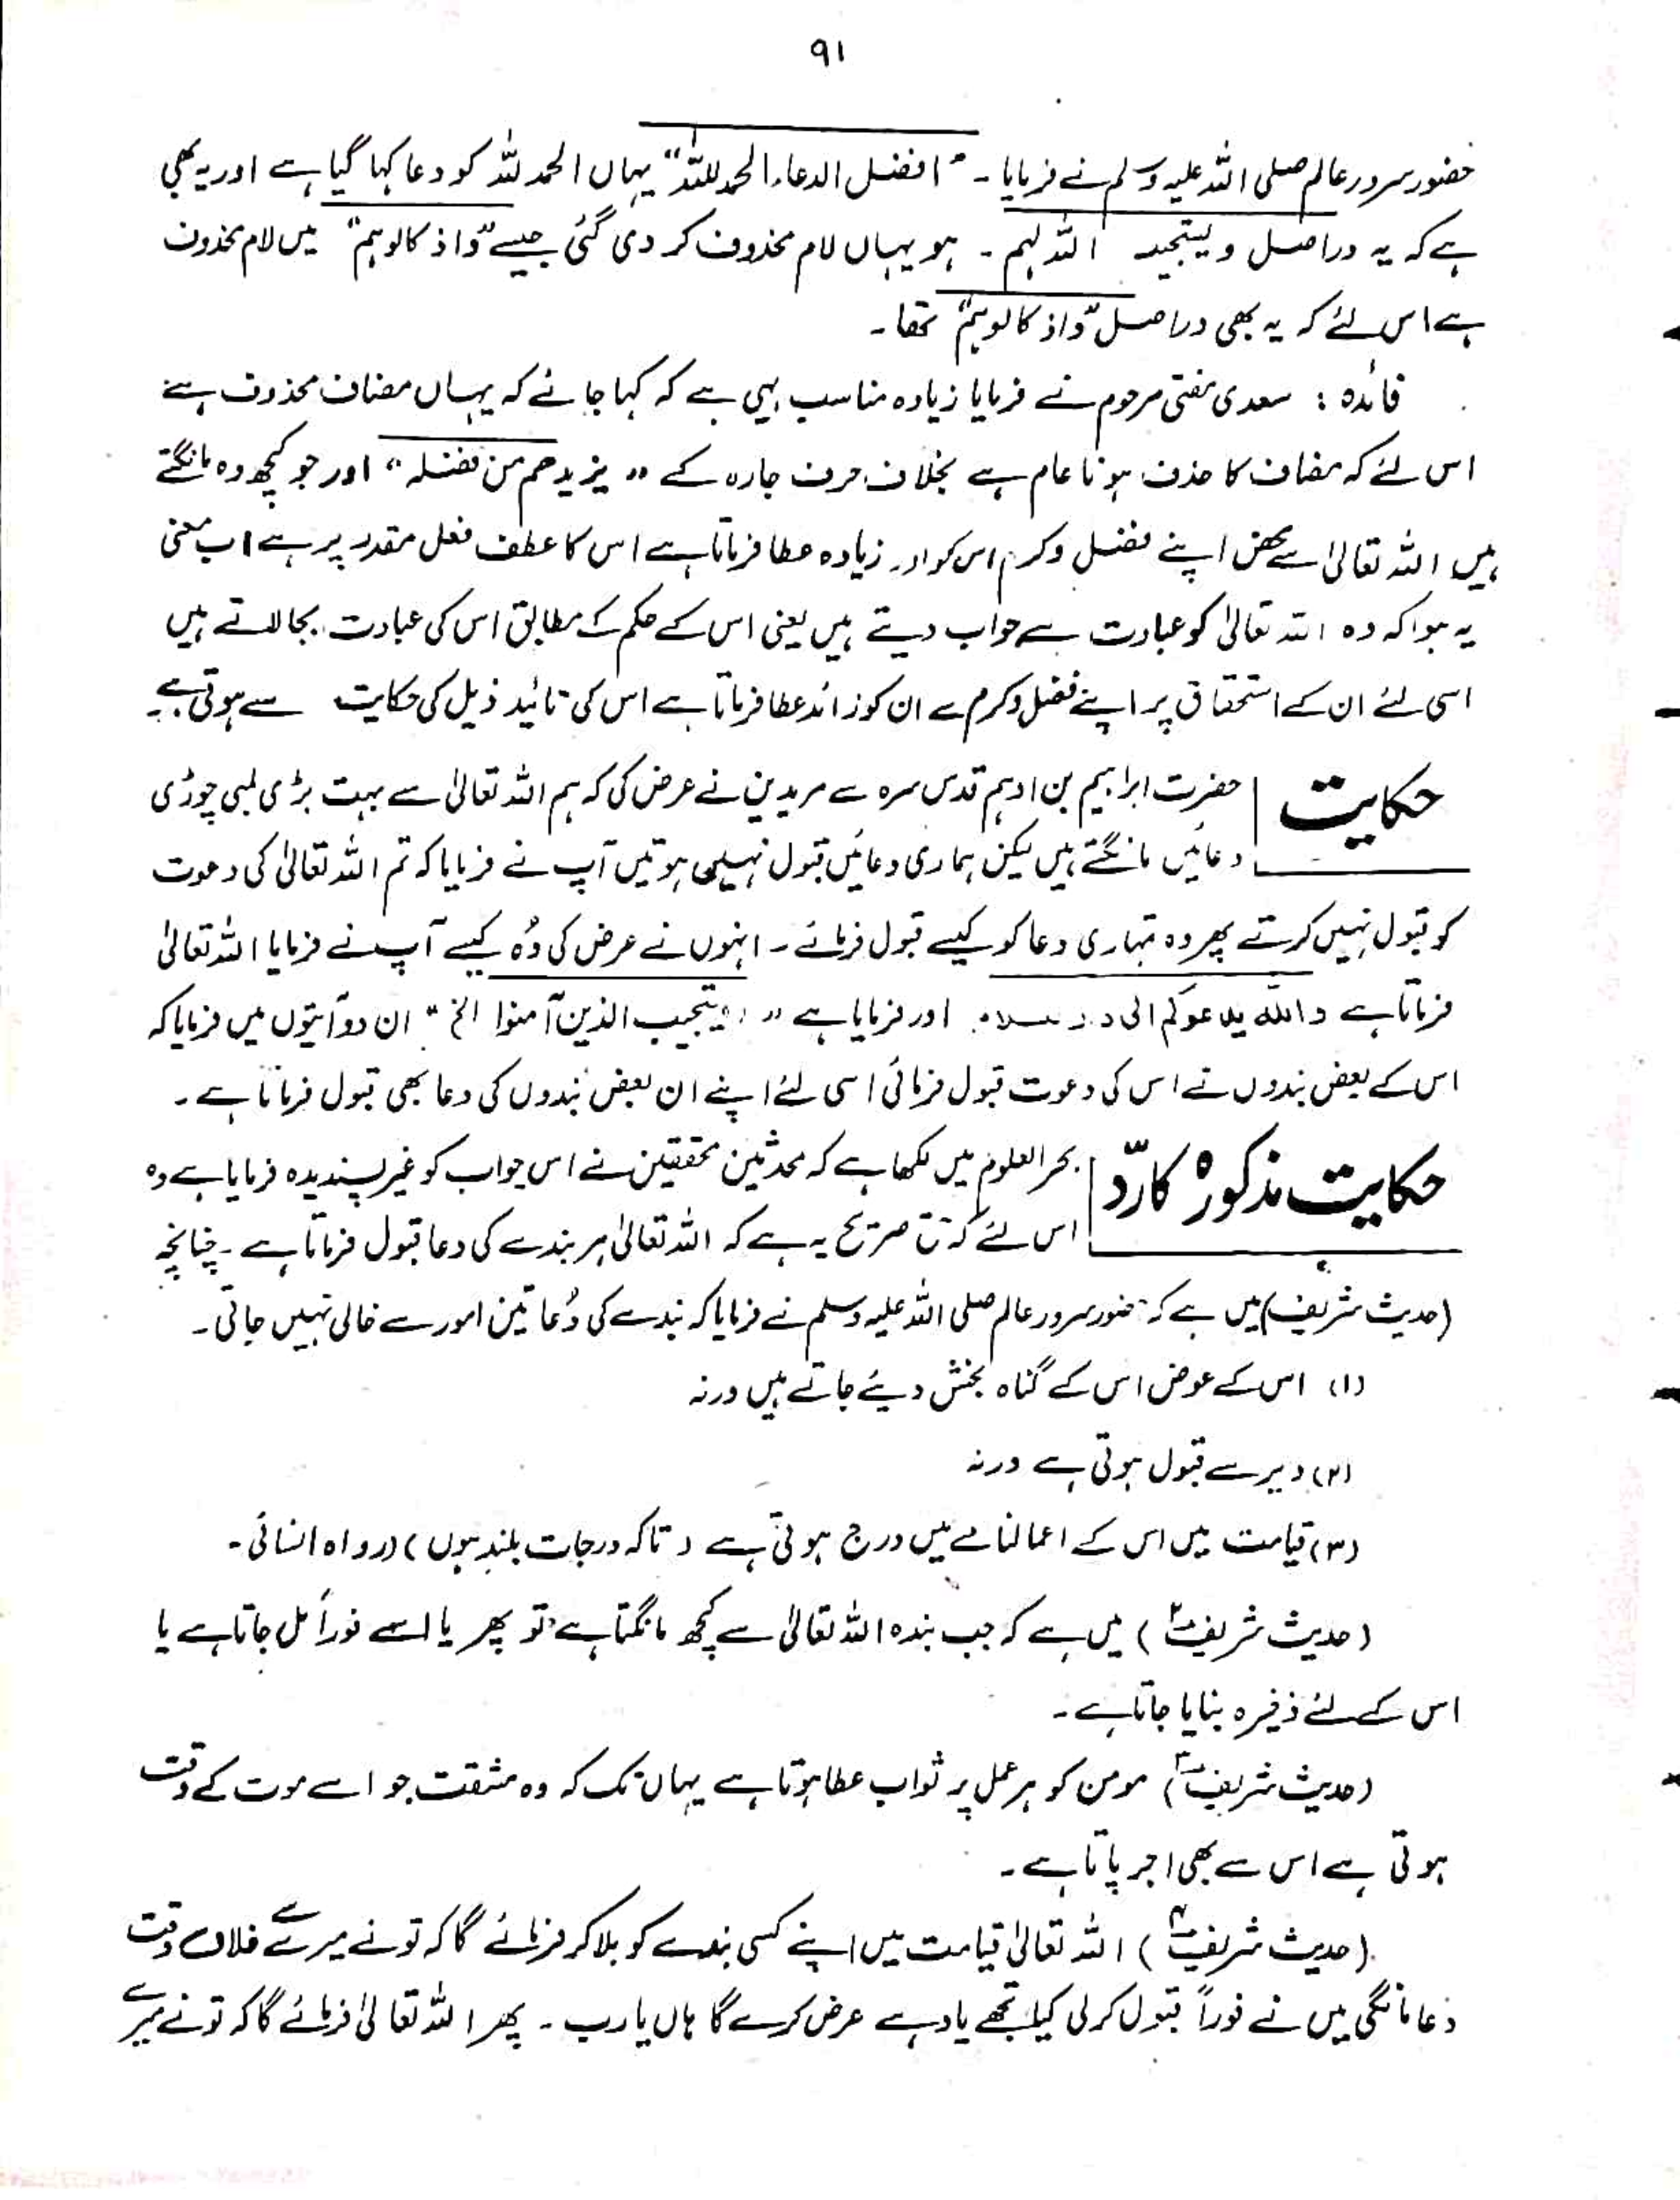 ۹۱
حضور سرور عالم صلی اللہ علیہ وسلم نے فرمایا۔ "افضل الدعاء الحمد للہ" یہاں الحمد للہ کو دعا کہا گیا ہے اور یہ بھی
ہے کہ یہ دراصل ویستجیب اللہ لہم۔ ہو یہاں لام محذوف کر دی گئی جیسے "واذ کالوہم" میں لام محذوف
ہے اس لئے کہ یہ بھی دراصل "واذ کالوہم" تھا۔
فائدہ : سعدی مفتی مرحوم نے فرمایا زیادہ مناسب یہی ہے کہ کہا جائے کہ یہاں مضاف محذوف ہے
اس لئے کہ مضاف کا حذف ہونا عام ہے بخلاف حرف جارہ کے "یزیدھم من فضلہ" اور جو کچھ وہ مانگتے
ہیں اللہ تعالیٰ سے محض اپنے فضل و کرم اس کو اور زیادہ عطا فرماتا ہے اس کا عطف فعل مقدر پر ہے اب معنی
یہ ہوا کہ وہ اللہ تعالیٰ کو عبادت سے جواب دیتے ہیں یعنی اس کے حکم کے مطابق اس کی عبادت بجا لاتے ہیں
اسی لئے ان کے استحقاق پر اپنے فضل و کرم سے ان کو زائد عطا فرماتا ہے اس کی تائید ذیل کی حکایت سے ہوتی ہے
حکایت حضرت ابراہیم بن ادہم قدس سرہ سے مریدین نے عرض کی کہ ہم اللہ تعالیٰ سے بہت بڑی لمبی چوڑی
دعائیں مانگتے ہیں لیکن ہماری دعائیں قبول نہیں ہوتیں آپ نے فرمایا کہ تم اللہ تعالیٰ کی دعوت
کو قبول نہیں کرتے پھر وہ تمہاری دعا کو کیسے قبول فرمائے۔ انہوں نے عرض کی وُہ کیسے آپ نے فرمایا اللہ تعالیٰ
فرماتا ہے واللہ یدعوکم الی دار السلام اور فرمایا ہے "ویستجیب الذین آمنوا الخ" ان دو آیتوں میں فرمایا کہ
اس کے بعض بندوں نے اس کی دعوت قبول فرمائی اسی لئے اپنے ان بعض بندوں کی دعا بھی قبول فرماتا ہے۔
حکایت مذکورہ کا ردّ بحر العلوم میں لکھا ہے کہ محدثین محققین نے اس جواب کو غیر پسندیدہ فرمایا ہے وہ
اس لئے کہ تصریح یہ ہے کہ اللہ تعالیٰ ہر بندے کی دعا قبول فرماتا ہے۔ چنانچہ
(حدیث شریف) میں ہے کہ حضور سرور عالم صلی اللہ علیہ وسلم نے فرمایا کہ بندے کی دُعا تین امور سے خالی نہیں جاتی۔
(۱) اس کے عوض اس کے گناہ بخش دیئے جاتے ہیں ورنہ
(۲) دیر سے قبول ہوتی ہے ورنہ
(۳) قیامت میں اس کے اعمالنامے میں درج ہوتی ہے (تاکہ درجات بلند ہوں) (رواہ انسائی۔
(حدیث شریف ۲) میں ہے کہ جب بندہ اللہ تعالیٰ سے کچھ مانگتا ہے تو پھر یا اسے فوراً مل جاتا ہے یا
اس کے لئے ذخیرہ بنایا جاتا ہے۔
(حدیث شریف ۳) مومن کو ہر عمل پر ثواب عطا ہوتا ہے یہاں تک کہ وہ مشقت جو اسے موت کے وقت
ہوتی ہے اس سے بھی اجر پاتا ہے۔
(حدیث شریف ۴) اللہ تعالیٰ قیامت میں اپنے کسی بندے کو بلا کر فرمائے گا کہ تو نے میرے سے فلاں وقت
دعا مانگی میں نے فوراً قبول کر لی کیا تجھے یاد ہے عرض کرے گا ہاں یا رب۔ پھر اللہ تعالیٰ فرمائے گا کہ تو نے میرے